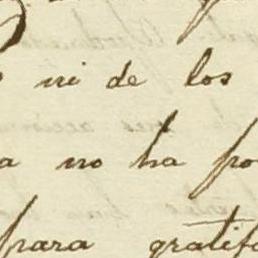 ni de los
no ha po
para gratifi